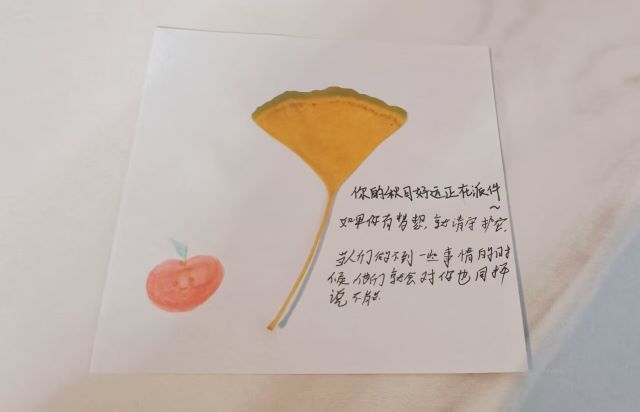 你的秋日好运正在派件~
如果你有梦想,就请守护它,
当人们做不到一些事情的时
候他们就会对你也同样
说不能